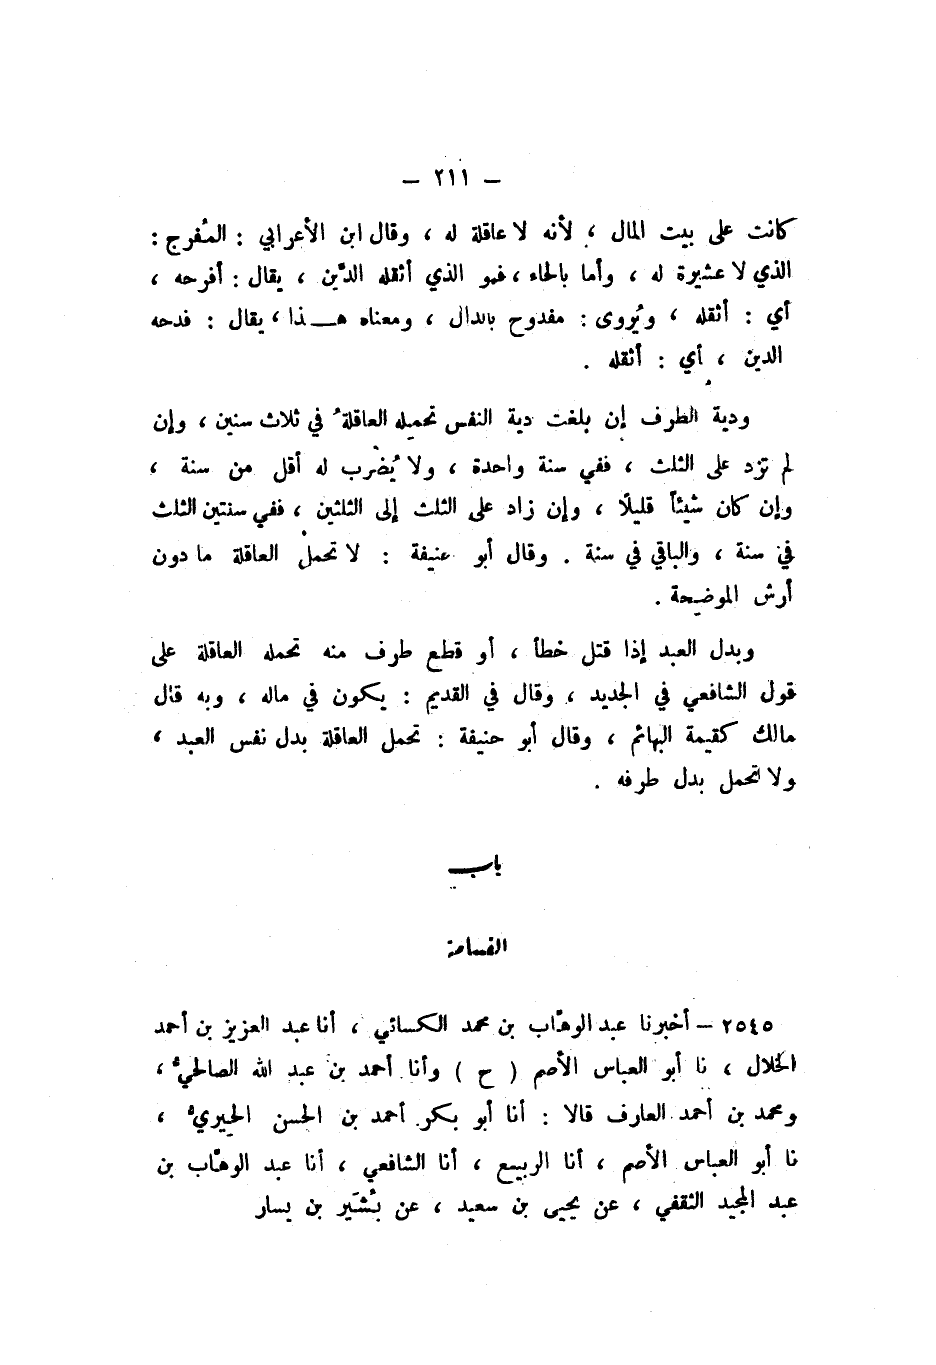 – ٢١١ –
كانت على بيت المال ، لأنه لا عاقلة له ، وقال ابن الأعرابي : المُفرج :
الذي لا عشيرة له ، وأما بالحاء ، فهو الذي أثقله الدَّين ، يقال : أفرحه ،
أي : أثقله ، ويُروى : مفدوح بالدال ، ومعناه هـــذا ، يقال : فدحه
الدين ، أي : أثقله .
ودية الطرف إن بلغت دية النفس تحمله العاقلةُ في ثلاث سنين ، وإن
لم تزد على الثلث ، ففي سنة واحدة ، ولا يُضرب له أقل من سنة ،
وإن كان شيئاً قليلًا ، وإن زاد على الثلث إلى الثلثين ، ففي سنتين الثلث
في سنة ، والباقي في سنة . وقال أبو حنيفة : لا تحملُ العاقلة ما دون
أرش الموضحة .
وبدل العبد إذا قتل خطأ ، أو قطع طرف منه تحمله العاقلة على
قول الشافعي في الجديد ، وقال في القديم : يكون في ماله ، وبه قال
مالك كقيمة البهائم ، وقال أبو حنيفة : تحمل العاقلة بدل نفس العبد ،
ولا تحمل بدل طرفه .
باب
القسامة
٢٥٤٥ – أخبرنا عبد الوهّاب بن محمد الكسائي ، أنا عبد العزيز بن أحمد
الخلال ، نا أبو العباس الأصم ( ح ) وأنا أحمد بن عبد الله الصالحيُّ ،
ومحمد بن أحمد العارف قالا : أنا أبو بكر أحمد بن الحسن الحيريُّ ،
نا أبو العباس الأصم ، أنا الربيع ، أنا الشافعي ، أنا عبد الوهّاب بن
عبد المجيد الثقفي ، عن يحيى بن سعيد ، عن بُشَير بن يسار